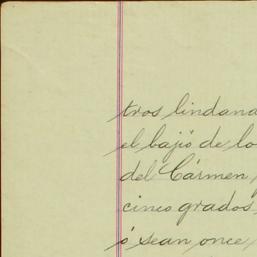 tros lindand
el bajó de lo
del Cármen,
cinco grados,
ó sean once,